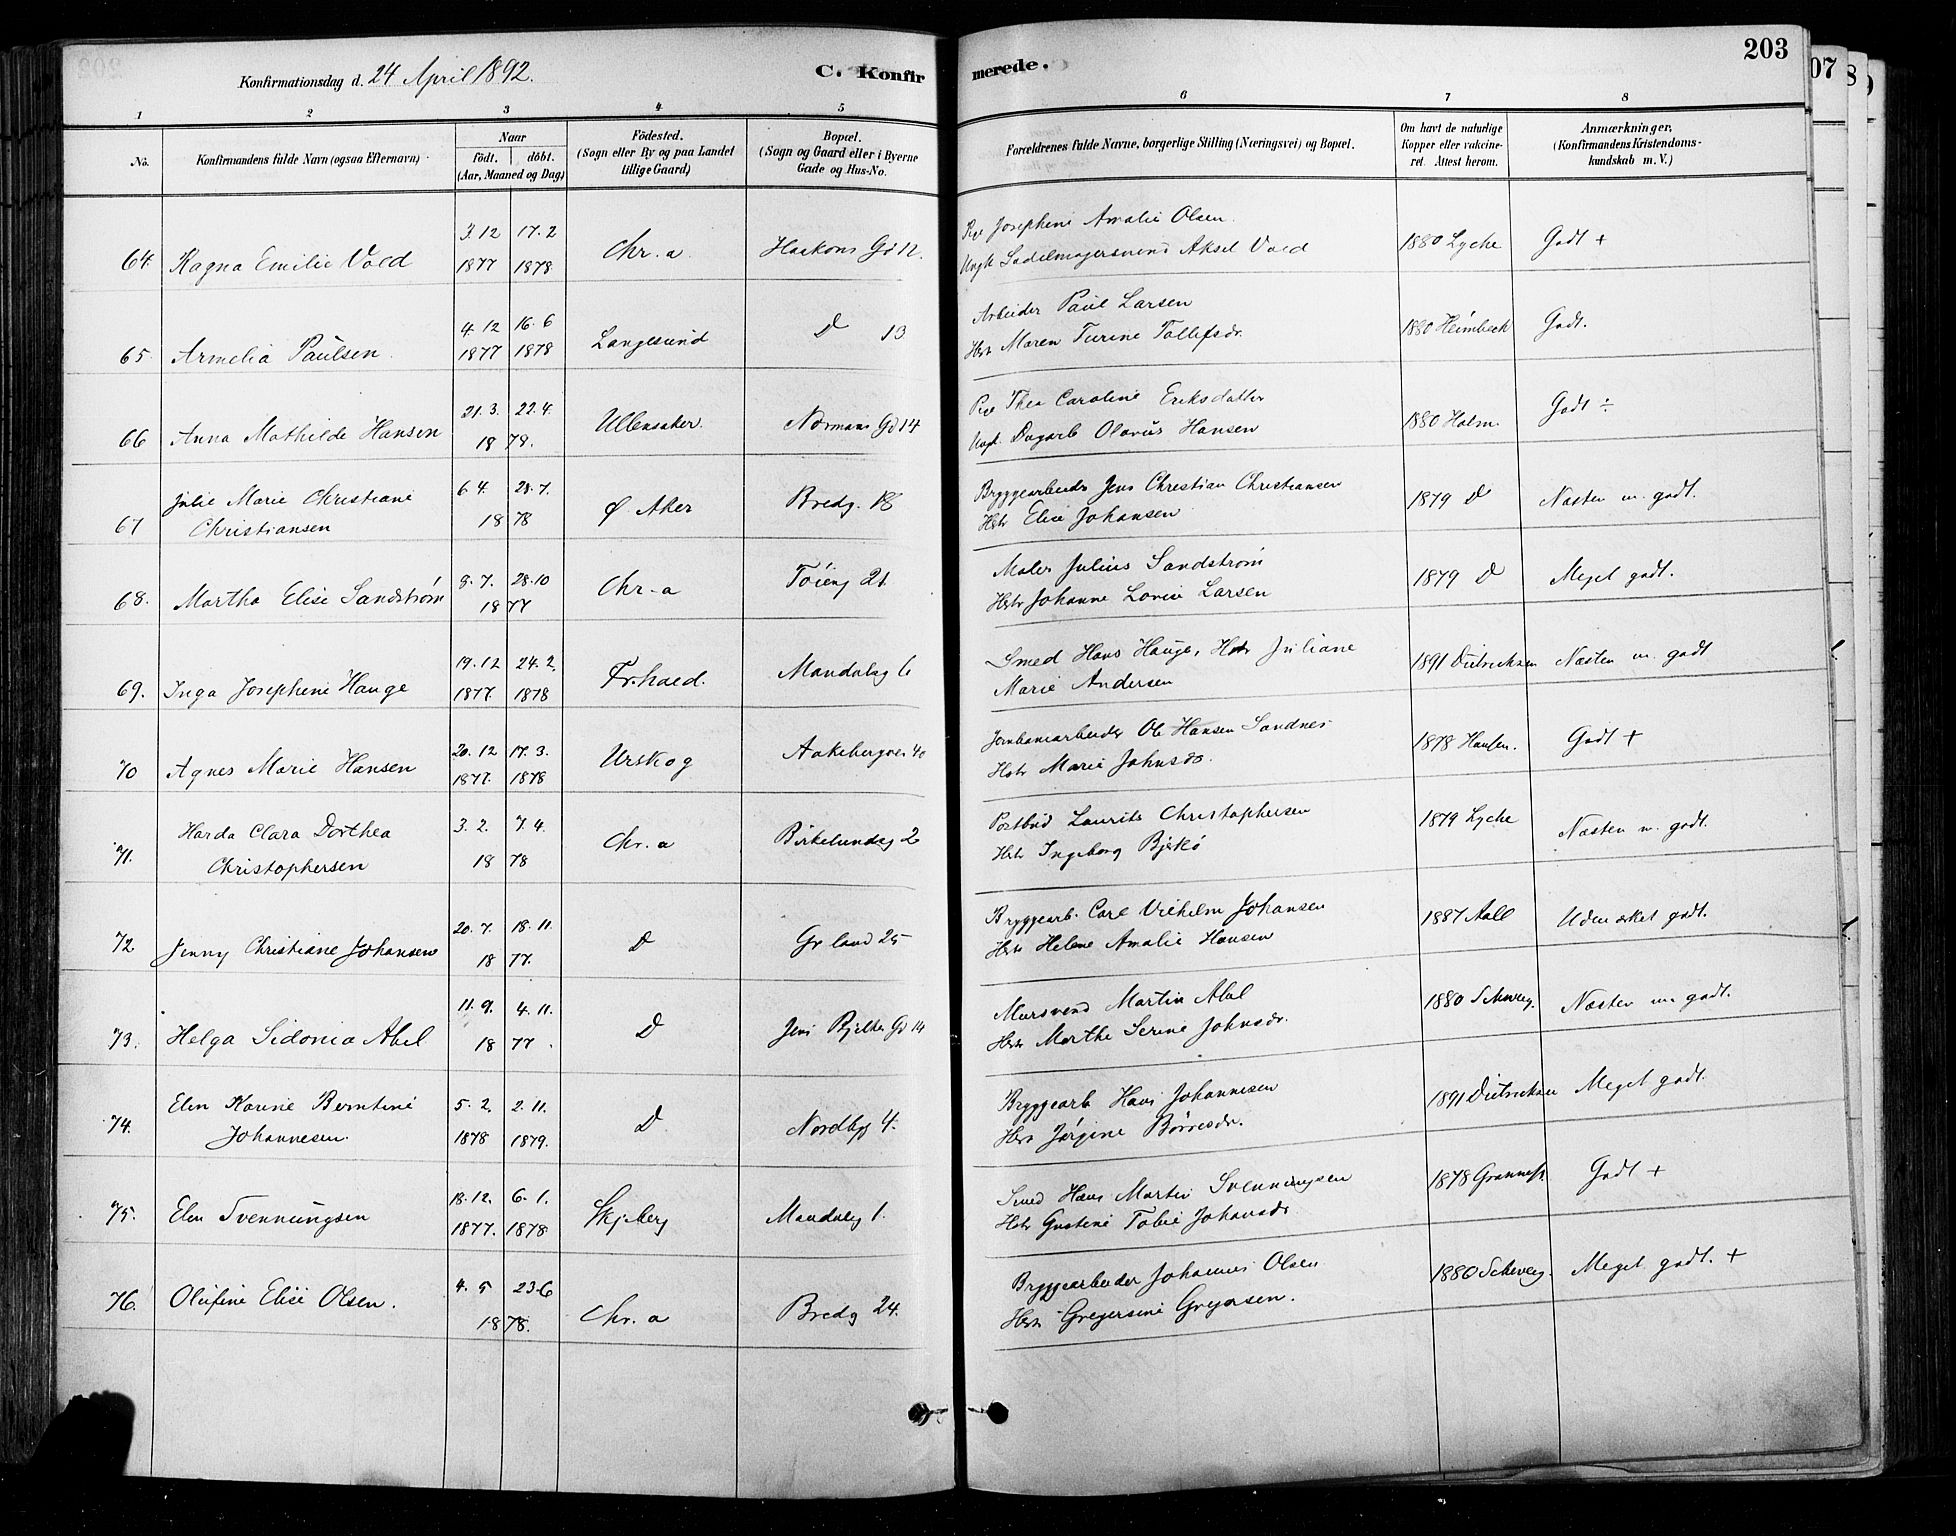 203
Konfirmationsdag d. 24 April 1892.
C. Konfirmerede.
1 2 3 4 5 6 7 8
No. Konfirmandens fulde Navn (ogsaa Efternavn) Naar födt. döbt. (Aar, Maaned og Dag) Födested. (Sogn eller By og paa Landet tillige Gaard) Bopæl. (Sogn og Gaard eller i Byerne Gade og Hus-No. Forældrenes fulde Navne, borgerlige Stilling (Næringsvei) og Bopæl. Om havt de naturlige Kopper eller vakcineret. Attest herom. Anmærkninger. (Konfirmandens Kristendomskundskab m. V.)
64. Ragna Emilie Vold 3. 12 1877 17. 2 1878 Chr.a Haakons Gd 12. Pige Josephine Amalie Olsen
Ungk Sadelmagersvend Aksel Vold 1880 Lyche Godt +
65. Armelia Paulsen 4. 12 1877 16. 6 1878 Langesund D 13 Arbeider Paul Larsen
Hstr Maren Turine Tollefsdr. 1880 Heimbeck Godt.
66 Anna Mathilde Hansen 21. 3. 22. 4. 1878. Ullensaker. Normans Gd 14 Pige Thea Caroline Eriksdatter
Ungk. Dagarb Olavus Hansen 1880 Holm. Godt ÷
67 Julie Marie Christiane
Christiansen 6. 4. 28. 7. 1878 Ø Aker Bredg. 18 Bryggearbeider Jens Christian Christiansen
Hstr Elise Johansen 1879 D Næsten m. godt.
68. Martha Elise Sandström 8. 7. 28. 10 1877 Chr.a Töieng 21 Maler Julius Sandström
Hstr Johanne Lovise Larsen 1879 D Meget godt.
69. Inga Josephine Hauge 19. 12 1877. 24. 2. 1878 Fr.hald. Mandalsg 6 Smed Hans Hauge, Hstr Juliane
Marie Andersen 1891 Dietrichsen Næsten m. godt
70 Agnes Marie Hansen 20. 12 1877. 17. 3. 1878 Urskog Aakebergvei 40 Jernbanearbeider Ole Hansen Sandnes
Hstr Marie Johnsdr. 1878 Godt +
71. Harda Clara Dorthea
Christophersen 3. 2. 7. 4. 1878 Chr.a Birkelundsg 2 Postbud Laurits Christophersen
Hstr Ingeborg Bjerkö 1879 Lyche Næsten m. godt.
72. Jenny Christiane Johansen 20. 7. 18. 11. 1877. D Grönland 25 Bryggearb. Carl Vilhelm Johansen
Hstr Helene Amalie Hansen 1887 Aall Udmærket godt.
73. Helga Sidonia Abel 11. 9. 4. 11. 1877. D Jens Bjelkes Gd 14 Mursvend Martin Abel
Hstr Marthe Serine Johnsdr. 1880 Schweig. Næsten m godt.
74. Elen Karine Berntine
Johannesen. 5. 2. 1878 2. 11. 1879. D Nordbyg 4. Bryggearb Hans Johannesen
Hstr Jörgine Börresdr. 1891 Dietrichsen Meget godt.
75. Elen Svenningsen 18. 12. 1877. 6. 1. 1878 Skjeberg Mandalsg 1. Smed Hans Martin Svenningsen
Hstr Gustine Tobie Johansdr 1878 Godt +
76. Olufine Elise Olsen. 4. 5 23. 6 1878. Chr.a Bredg 24. Bryggearbeider Johannes Olsen
Hstr Gregersine Gregersen. 1880 Schweig. Meget godt. +